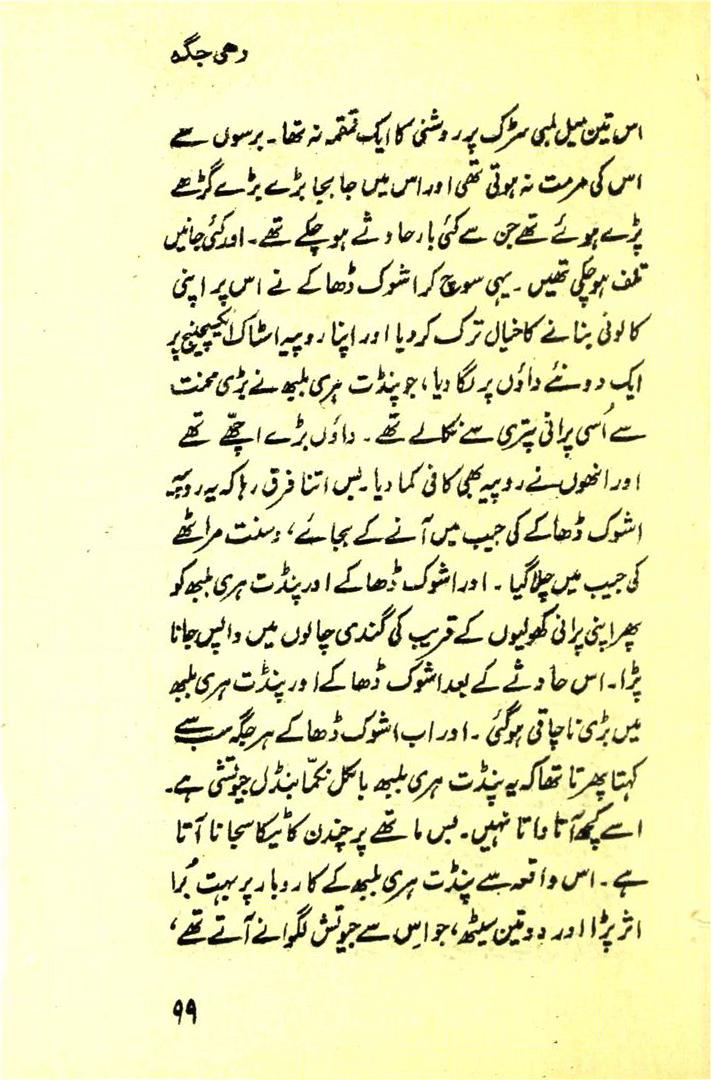 رهی جگہ
اس تین میل لمبی سڑک پر روشنی کا ایک قمقمہ نہ تھا۔ برسوں سے
اس کی مرمت نہ ہوتی تھی اور اس میں جا بجا بڑے بڑے گڑھے
پڑے ہوئے تھے جن سے کئی بار حادثے ہو چکے تھے۔ اور کئی جانیں
تلف ہو چکی تھیں۔ یہی سوچ کر اشوک ڈھاکے نے اس پر اپنی
کالونی بنانے کا خیال ترک کر دیا اور اپنا روپیہ اسٹاک ایکسچینج پر
ایک دو نئے داؤں پر لگا دیا، جو پنڈت ہری بلبھ نے بڑی محنت
سے اُسی پرانی پتری سے نکالے تھے۔ داؤں بڑے اچھّے تھے
اور انھوں نے روپیہ بھی کافی کما دیا۔ بس اتنا فرق رہا کہ یہ روپیہ
اشوک ڈھاکے کی جیب میں آنے کے بجائے، وسنت مراٹھے
کی جیب میں چلا گیا۔ اور اشوک ڈھاکے اور پنڈت ہری بلبھ کو
پھر اپنی پرانی کھولیوں کے قریب کی گندی چالوں میں واپس جانا
پڑا۔ اس حادثے کے بعد اشوک ڈھاکے اور پنڈت ہری بلبھ
میں بڑی ناچاقی ہو گئی۔ اور اب اشوک ڈھاکے ہر جگہ سب سے
کہتا پھرتا تھا کہ یہ پنڈت ہری بلبھ بالکل نکمّا بنڈل جیوتشی ہے۔
اسے کچھ آتا واتا نہیں۔ بس ماتھے پر چندن کا ٹیکا سجانا آتا
ہے۔ اس واقعہ سے پنڈت ہری بلبھ کے کاروبار پر بہت بُرا
اثر پڑا اور دو تین سیٹھ، جو اس سے جیوتش لگوانے آتے تھے،
۹۹